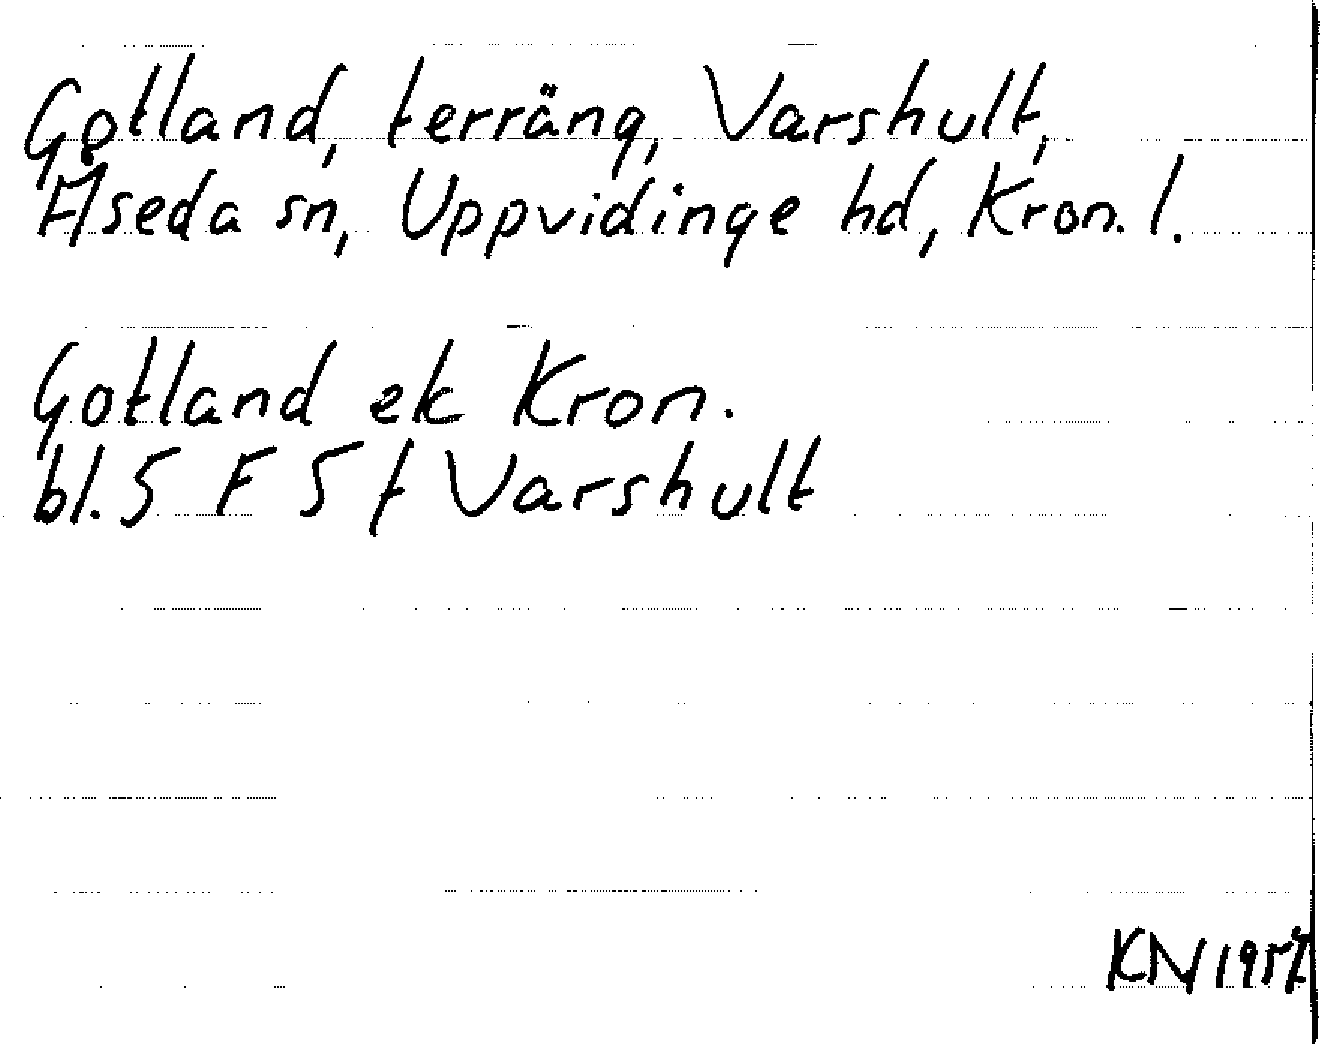 Gotland, terräng, Varshult,
Åseda sn, Uppvidinge hd, Kron. l.
Gotland ek Kron.
bl. 5 F 5 f Varshult
KN 1957